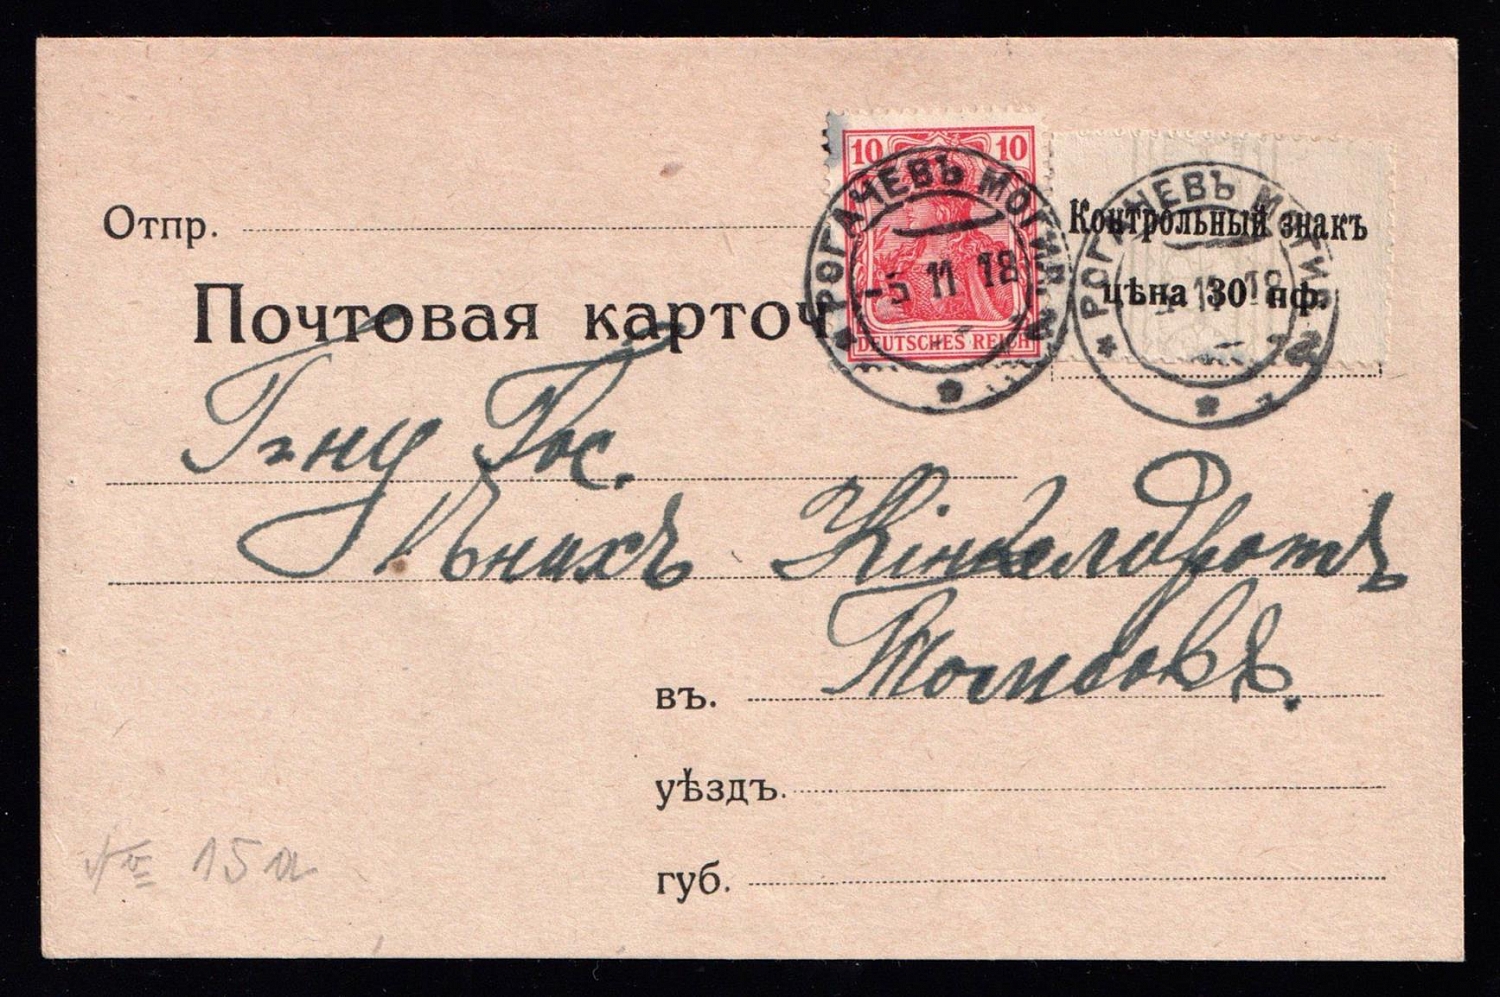 Отпр.
Почтовая карточ
10 10
DEUTSCHES REICH
РОГАЧЕВЪ МОГИЛ.
-5 11 18
Контрольный знакъ
цѣна 30 пф.
РОГАЧЕВЪ МОГИЛ.
11 18
Г-ну Гос.
въ.
уѣздъ.
губ.
15a